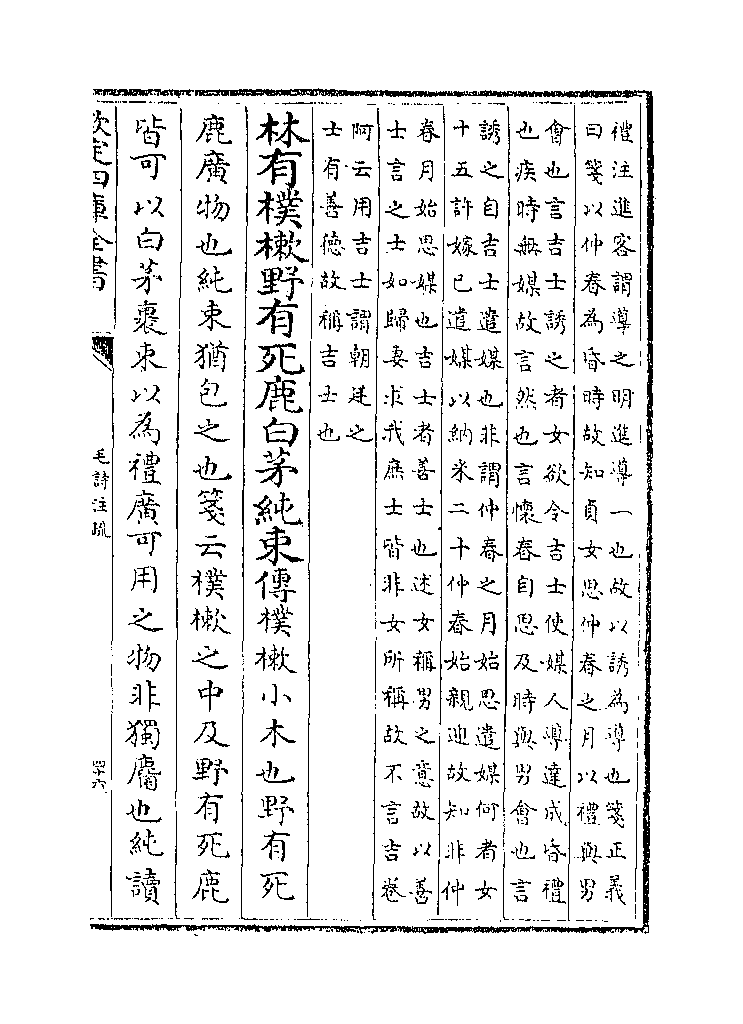 禮注進客謂導之明進導一也故以誘為導也箋正義
曰箋以仲春為昏時故知貞女思仲春之月以禮與男
會也言吉士誘之者女欲令吉士使媒人導達成昏禮
也疾時無媒故言然也言懷春自思及時與男會也言
誘之自吉士遣媒也非謂仲春之月始思遣媒何者女
十五許嫁已遣媒以納采二十仲春始親迎故知非仲
春月始思媒也吉士者善士也述女稱男之意故以善
士言之士如歸妻求我庶士皆非女所稱故不言吉卷
阿云用吉士謂朝廷之
士有善德故稱吉士也
林有樸樕野有死鹿白茅純束傳樸樕小木也野有死
鹿廣物也純束猶包之也箋云樸樕之中及野有死鹿
皆可以白茅裹束以為禮廣可用之物非獨麕也純讀
欽定四庫全書
毛詩注疏
四十六